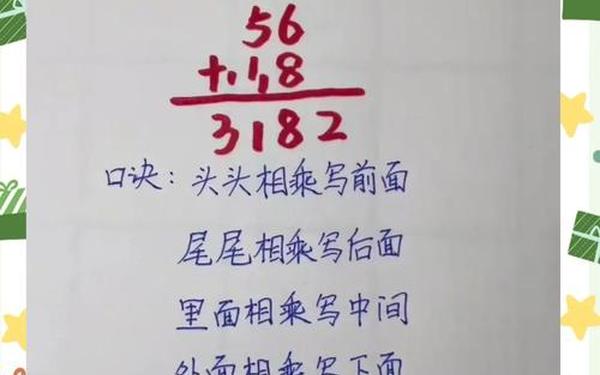 56
+1,1,8
3182
口诀：头头相乘写前面
尾尾相乘写后面
里面相乘写中间
外面相乘写下面